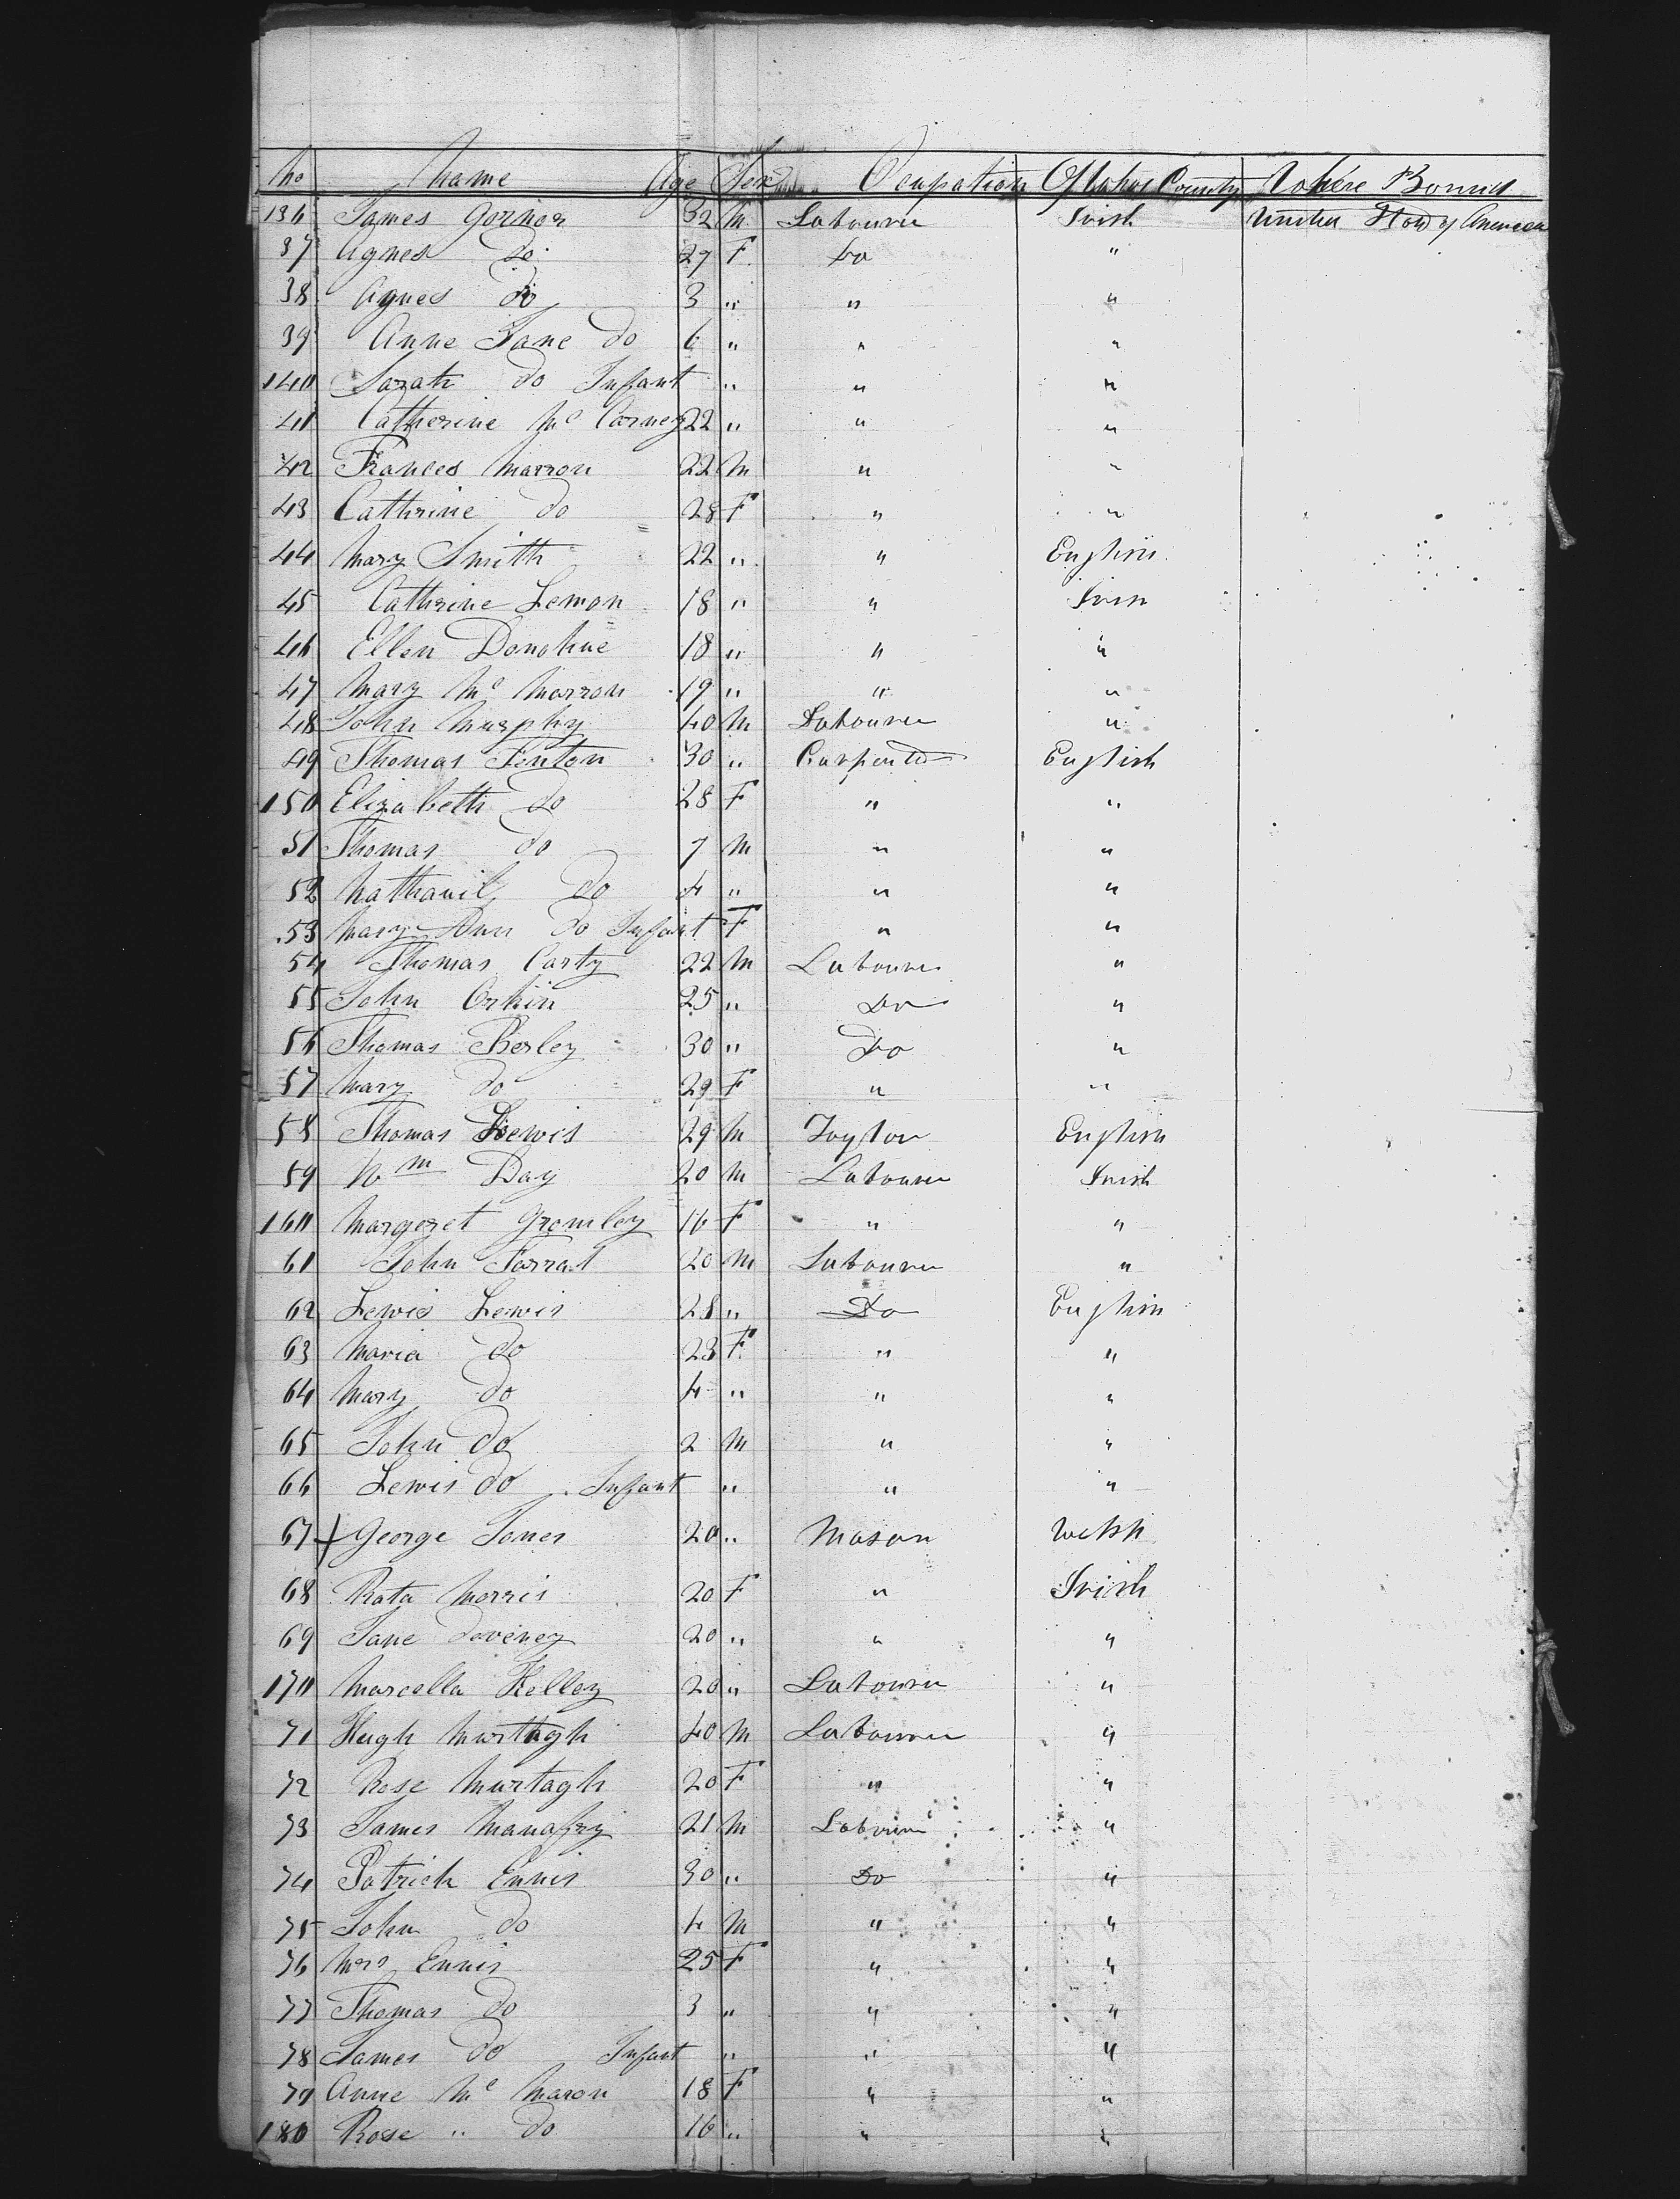 No Name Age Sex Ocupation Of What County Where Bound
136 James Gornor 32 M Labourer Irish United States of America
37 Agnes Do 27 F Do "
38 Agnes Do 3 " " "
39 Anne Jane Do 6 " " "
140 Sarah Do Infant " " "
41 Catherine Mc Carney 22 " " "
42 Frances Marron 22 M " "
43 Cathrine Do 28 F " "
44 Mary Smith 22 " " English
45 Cathrine Lemon 18 " " Irish
46 Ellen Donohue 18 " " "
47 Mary Mc Marron 19 " " "
48 John Murphy 40 M Labourer "
49 Thomas Fenton 30 " Carpenter English
150 Elizabeth Do 28 F " "
51 Thomas Do 7 M " "
52 Nathanil Do 4 " " "
53 Mary Ann Do Infant F " "
54 Thomas Carty 22 M Labourer "
55 John Orkin 25 " Do "
56 Thomas Berley 30 " Do "
57 Mary Do 29 F " "
58 Thomas Lewis 29 M Taylor English
59 Wm Day 20 M Labourer Irish
160 Margeret Gromley 16 F " "
61 John Farrat 20 M Labourer "
62 Lewis Lewis 28 " Do English
63 Maria Do 23 F " "
64 Mary Do 4 " " "
65 John Do 2 M " "
66 Lewis Do Infant " " "
67 + George Jones 20 " Mason Welsh
68 Kata Morris 20 F " Irish
69 Jane Deveney 20 " " "
170 Marcella Kelley 20 " Labourer "
71 Hugh Murthgh 40 M Labourer "
72 Rose Murtagh 20 F " "
73 James Manafry 21 M Labourer "
74 Patrick Ennis 30 " Do "
75 John Do 4 M " "
76 Mrs Ennis 25 F " "
77 Thomas Do 3 " " "
78 James Do Infant " " "
79 Anne Mc Maron 18 F " "
180 Rose " Do 16 " " "